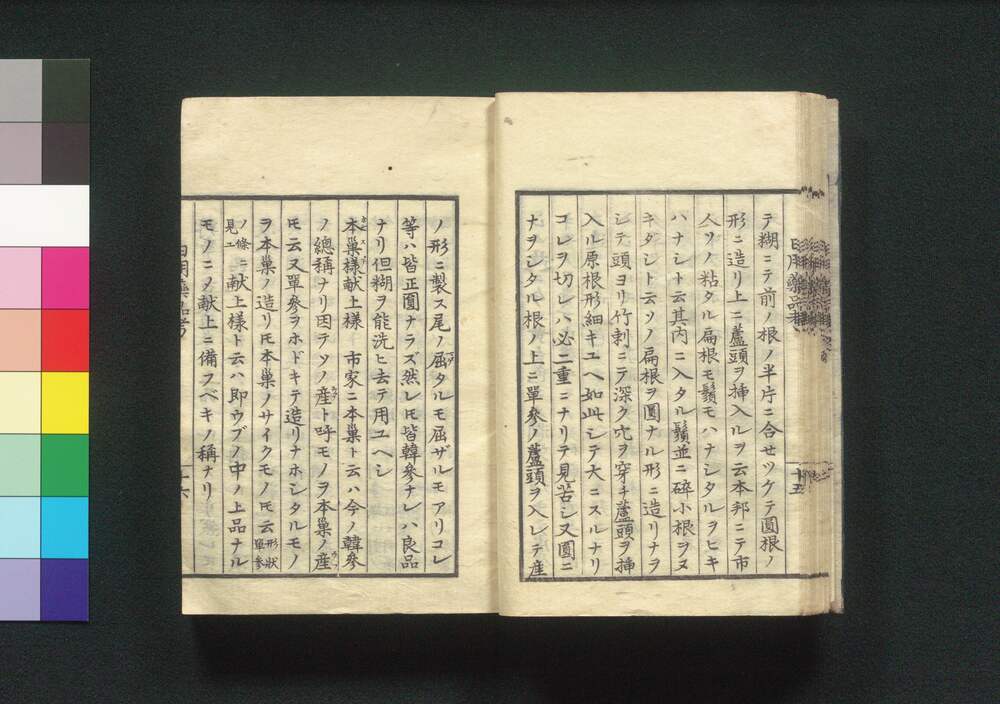 テ糊ニテ前ノ根ノ半片ニ合セツケテ圓根ノ
形ニ造リ上ニ蘆頭ヲ挿入ルヲ云本邦ニテ市
人ソノ粘タル扁根モ鬚モハナシタルヲヒキ
ハナシト云其内ニ入タル鬚並ニ碎小根ヲヌ
キダシト云ソノ扁根ヲ圓ナル形ニ造リナヲ
シテ頭ヨリ竹刺ニテ深ク穴ヲ穿チ蘆頭ヲ挿
入ル原根形細キユヘ如此シテ大ニスルナリ
コレヲ切レハ必二重ニナリテ見苦シ又圓ニ
ナヲシタル根ノ上ニ單參ノ蘆頭ヲ入レテ産
日用藥品考
十五
ノ形ニ製ス尾ノ屈タルモ屈ザルモアリコレ
等ハ皆正圓ナラズ然レ𪜈皆韓參ナレハ良品
ナリ但糊ヲ能洗ヒ去テ用ユヘシ
本巣様献上様 市家ニ本巣ト云ハ今ノ韓參
ノ總稱ナリ因テソノ産ト呼モノヲ本巣ノ産
𪜈云又單參ヲホドキテ造リナホシタルモノ
ヲ本巣ノ造リ𪜈本巣ノサイクモノ𪜈云形状單參
ノ條ニ見ユ献上様ト云ハ即ウブノ中ノ上品ナル
モノニメ献上ニ備フベキノ稱ナリ
日用藥品考
十六